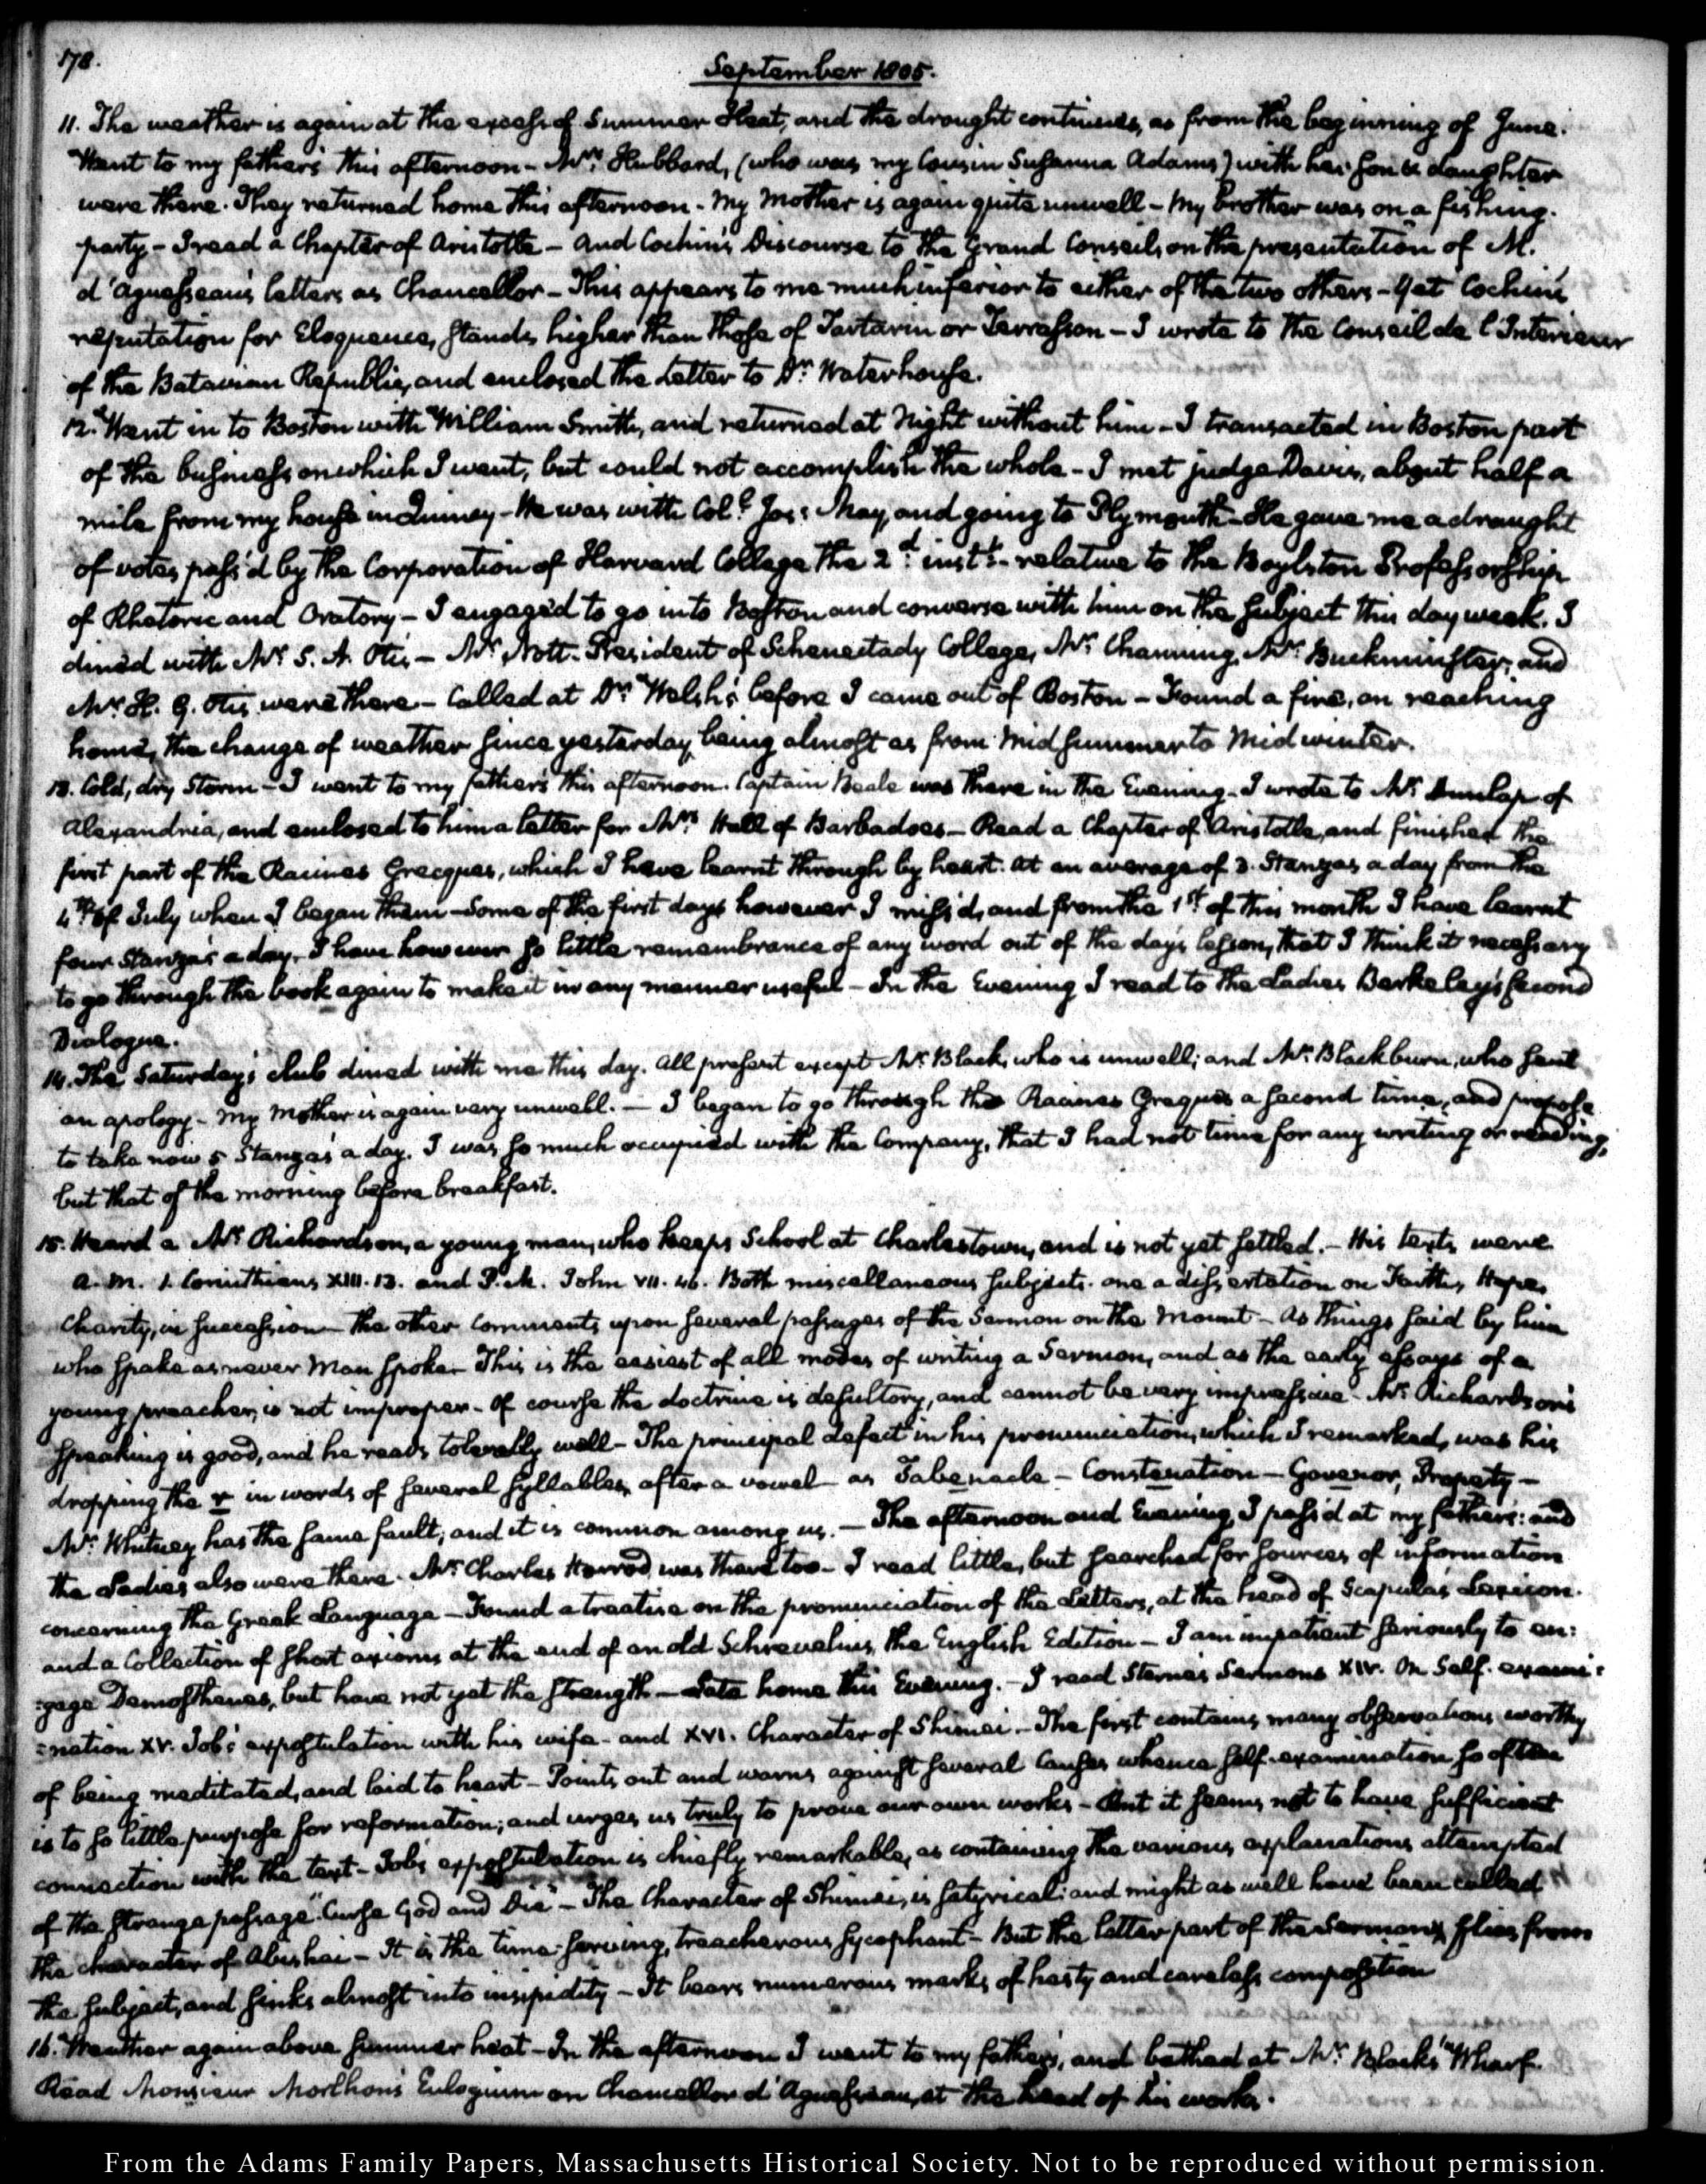 178.
September 1805.
11. The weather is again at the excess of Summer Heat, and the drought continues, as from the beginning of June.
Went to my father's this afternoon - Mrs. Hubbard, (who was my Cousin Susanna Adams) with her son & daughter
were there. They returned home this afternoon - My Mother is again quite unwell - My Brother was on a fishing
party - I read a Chapter of Aristotle - and Cochin's Discourse to the Grand Conseil, on the presentation of M.
d'Aguesseau's letters as Chancellor - This appears to me much inferior to either of the two others - Yet Cochin's
reputation for Eloquence, stands higher than those of Tartarin or Terrasson - I wrote to the Conseil de l'Interieur
of the Batavian Republic, and enclosed the Letter to Dr. Waterhouse.
12. Went in to Boston with William Smith, and returned at Night without him - I transacted in Boston part
of the business on which I went, but could not accomplish the whole - I met judge Davis, about half a
mile from my house in Quincy - He was with Coll. Jos: May, and going to Plymouth - He gave me a draught
of votes pass'd by the Corporation of Harvard College the 2d. instt. - relative to the Boylston Professorship
of Rhetoric and Oratory - I engaged to go into Boston and converse with him on the subject this day week. I
dined with Mr. S. A. Otis - Mr. Nott. President of Schenectady College, Mr. Channing, Mr. Buckminster, and
Mr. H. G. Otis were there - Called at Dr. Welsh's before I came out of Boston - Found a fire, on reaching
home, the change of weather since yesterday, being almost as from Midsummer to Midwinter.
13. Cold, dry Storm - I went to my father's this afternoon. Captain Beale was there in the Evening - I wrote to Mr. Dunlap of
Alexandria, and enclosed to him a letter for Mrs. Hall of Barbadoes - Read a Chapter of Aristotle, and finished the
first part of the Racines Grecques, which I have learnt through by heart. at an average of 3. Stanzas a day from the
4th. of July when I began them - Some of the first days however I miss'd, and from the 1st. of this month I have learnt
four Stanza's a day. I have however so little remembrance of any word out of the day's lesson, that I think it necessary
to go through the book again to make it in any manner useful - In the Evening I read to the Ladies Berkeley's second
Dialogue.
14. The Saturday's club dined with me this day. All present except Mr. Black, who is unwell; and Mr. Blackburn, who sent
an apology - My Mother is again very unwell. - I began to go through the Racines Greques a second time, and propose
to take now 5 Stanza's a day. I was so much occupied with the Company, that I had not time for any writing or reading,
but that of the morning before breakfast.
15. Heard a Mr. Richardson, a young man, who keeps School at Charlestown, and is not yet settled. - His texts were
A.M. 1. Corinthians XIII. 13. and P.M. John VII. 46. Both miscellaneous subjects. one a dissertation on Faith, Hope,
Charity, in succession - the other Comments upon several passages of the Sermon on the Mount - As things said by him
who spake as never Man spoke - This is the easiest of all modes of writing a Sermon, and as the early essays of a
young preacher, is not improper - Of course the doctrine is desultory, and cannot be very impressive - Mr. Richardson's
speaking is good, and he reads tolerably well - The principal defect in his pronunciation, which I remarked, was his
dropping the r in words of several syllables, after a vowel - as Tabenacle - Constenation - Govenor, Propety -
Mr. Whitney has the same fault; and it is common among us. - The afternoon and Evening, I pass'd at my father's: and
the Ladies also were there. Mr. Charles Horrod was there too - I read little, but searched for sources of information
concerning the Greek Language - Found a treatise on the pronunciation of the Letters, at the head of Scapula's Lexicon.
and a Collection of short axioms at the end of an old Schrevelius, the English Edition - I am impatient seriously to en:
:gage Demosthenes, but have not yet the strength - Late home this Evening. - I read Sterne's Sermons XIV. On Self. exami:
:nation XV. Job's expostulation with his wife - and XVI. Character of Shimei. - The first contains many observations worthy
of being meditated, and laid to heart - Points out and warns against several Causes whence self-examination so often
is to so little purpose for reformation; and urges us truly to prove our own works - But it seems not to have sufficient
connection with the text - Job's expostulation is chiefly remarkable, as containing the various explanations attempted
of the strange passage "Curse God and Die" - The Character of Shimei, is satyrical: and might as well have been called
the character of Abishai - It is the time-serving, treacherous sycophant - But the latter part of the Sermon flies from
the subject, and sinks almost into insipidity - It bears numerous marks of hasty and careless composition
16. Weather again above summer heat - In the afternoon I went to my father's, and bathed at Mr. Black's Wharf.
Read Monsieur Morlhon's Eulogium on Chancellor d'Aguesseau, at the head of his works.
From the Adams Family Papers, Massachusetts Historical Society. Not to be reproduced without permission.